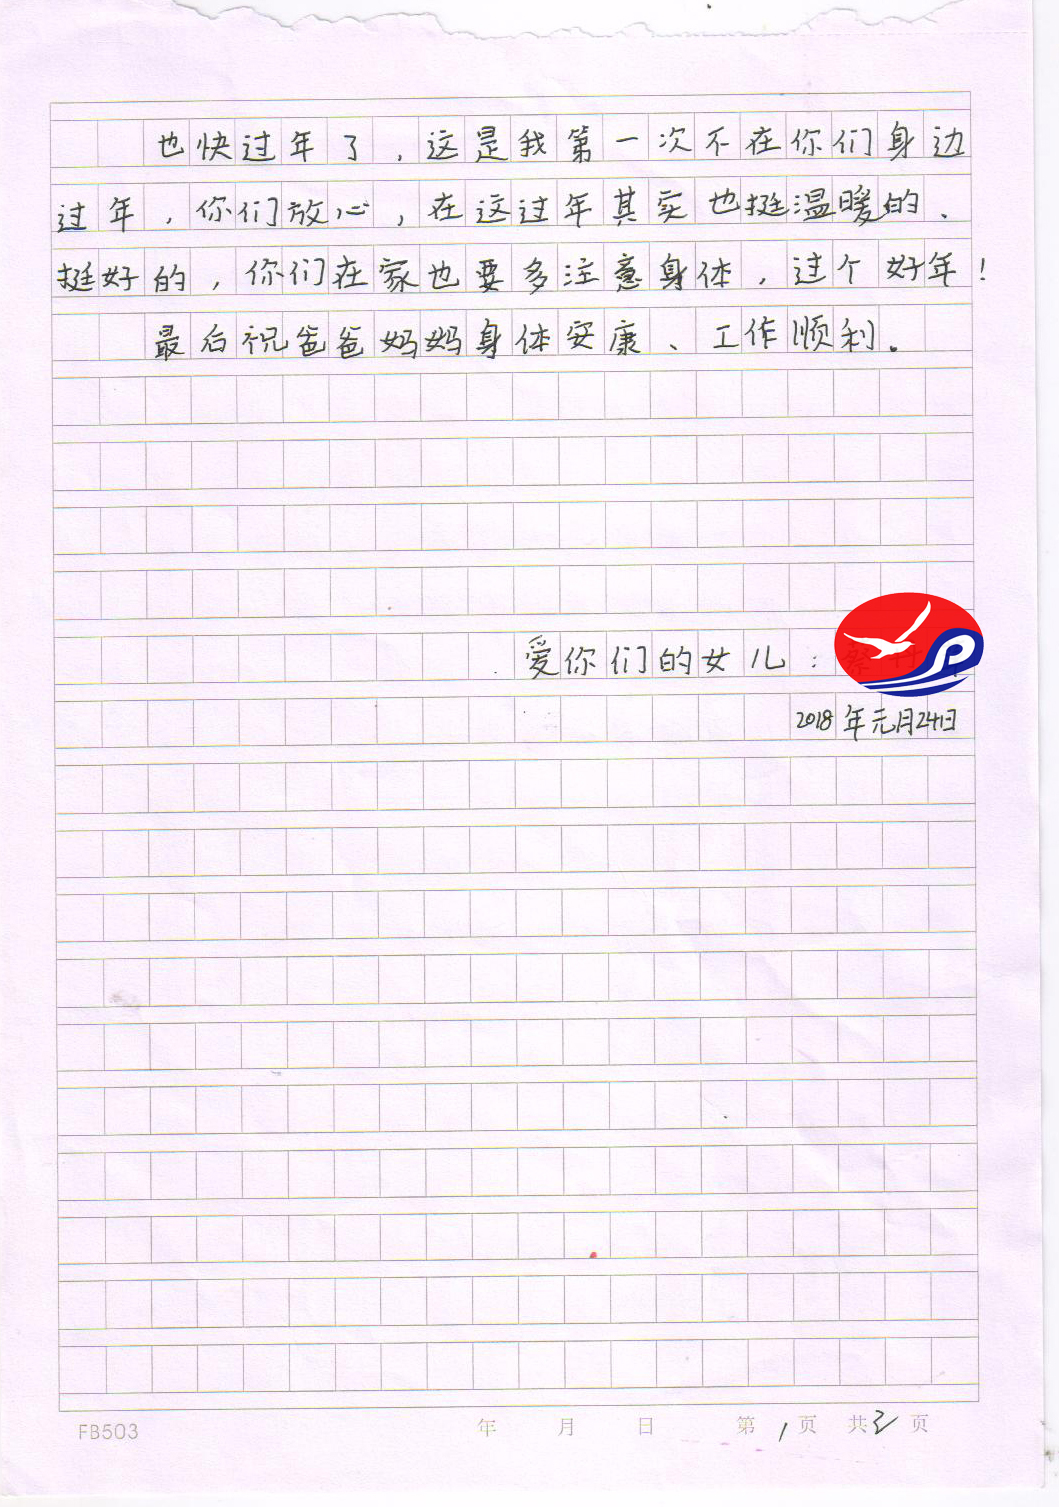 也快过年了，这是我第一次不在你们身边
过年，你们放心，在这过年其实也挺温暖的、
挺好的，你们在家也要多注意身体，过个好年！
最后祝爸爸妈妈身体安康、工作顺利。
爱你们的女儿：
2018年元月24日
FB503 年 月 日 第1页 共3页